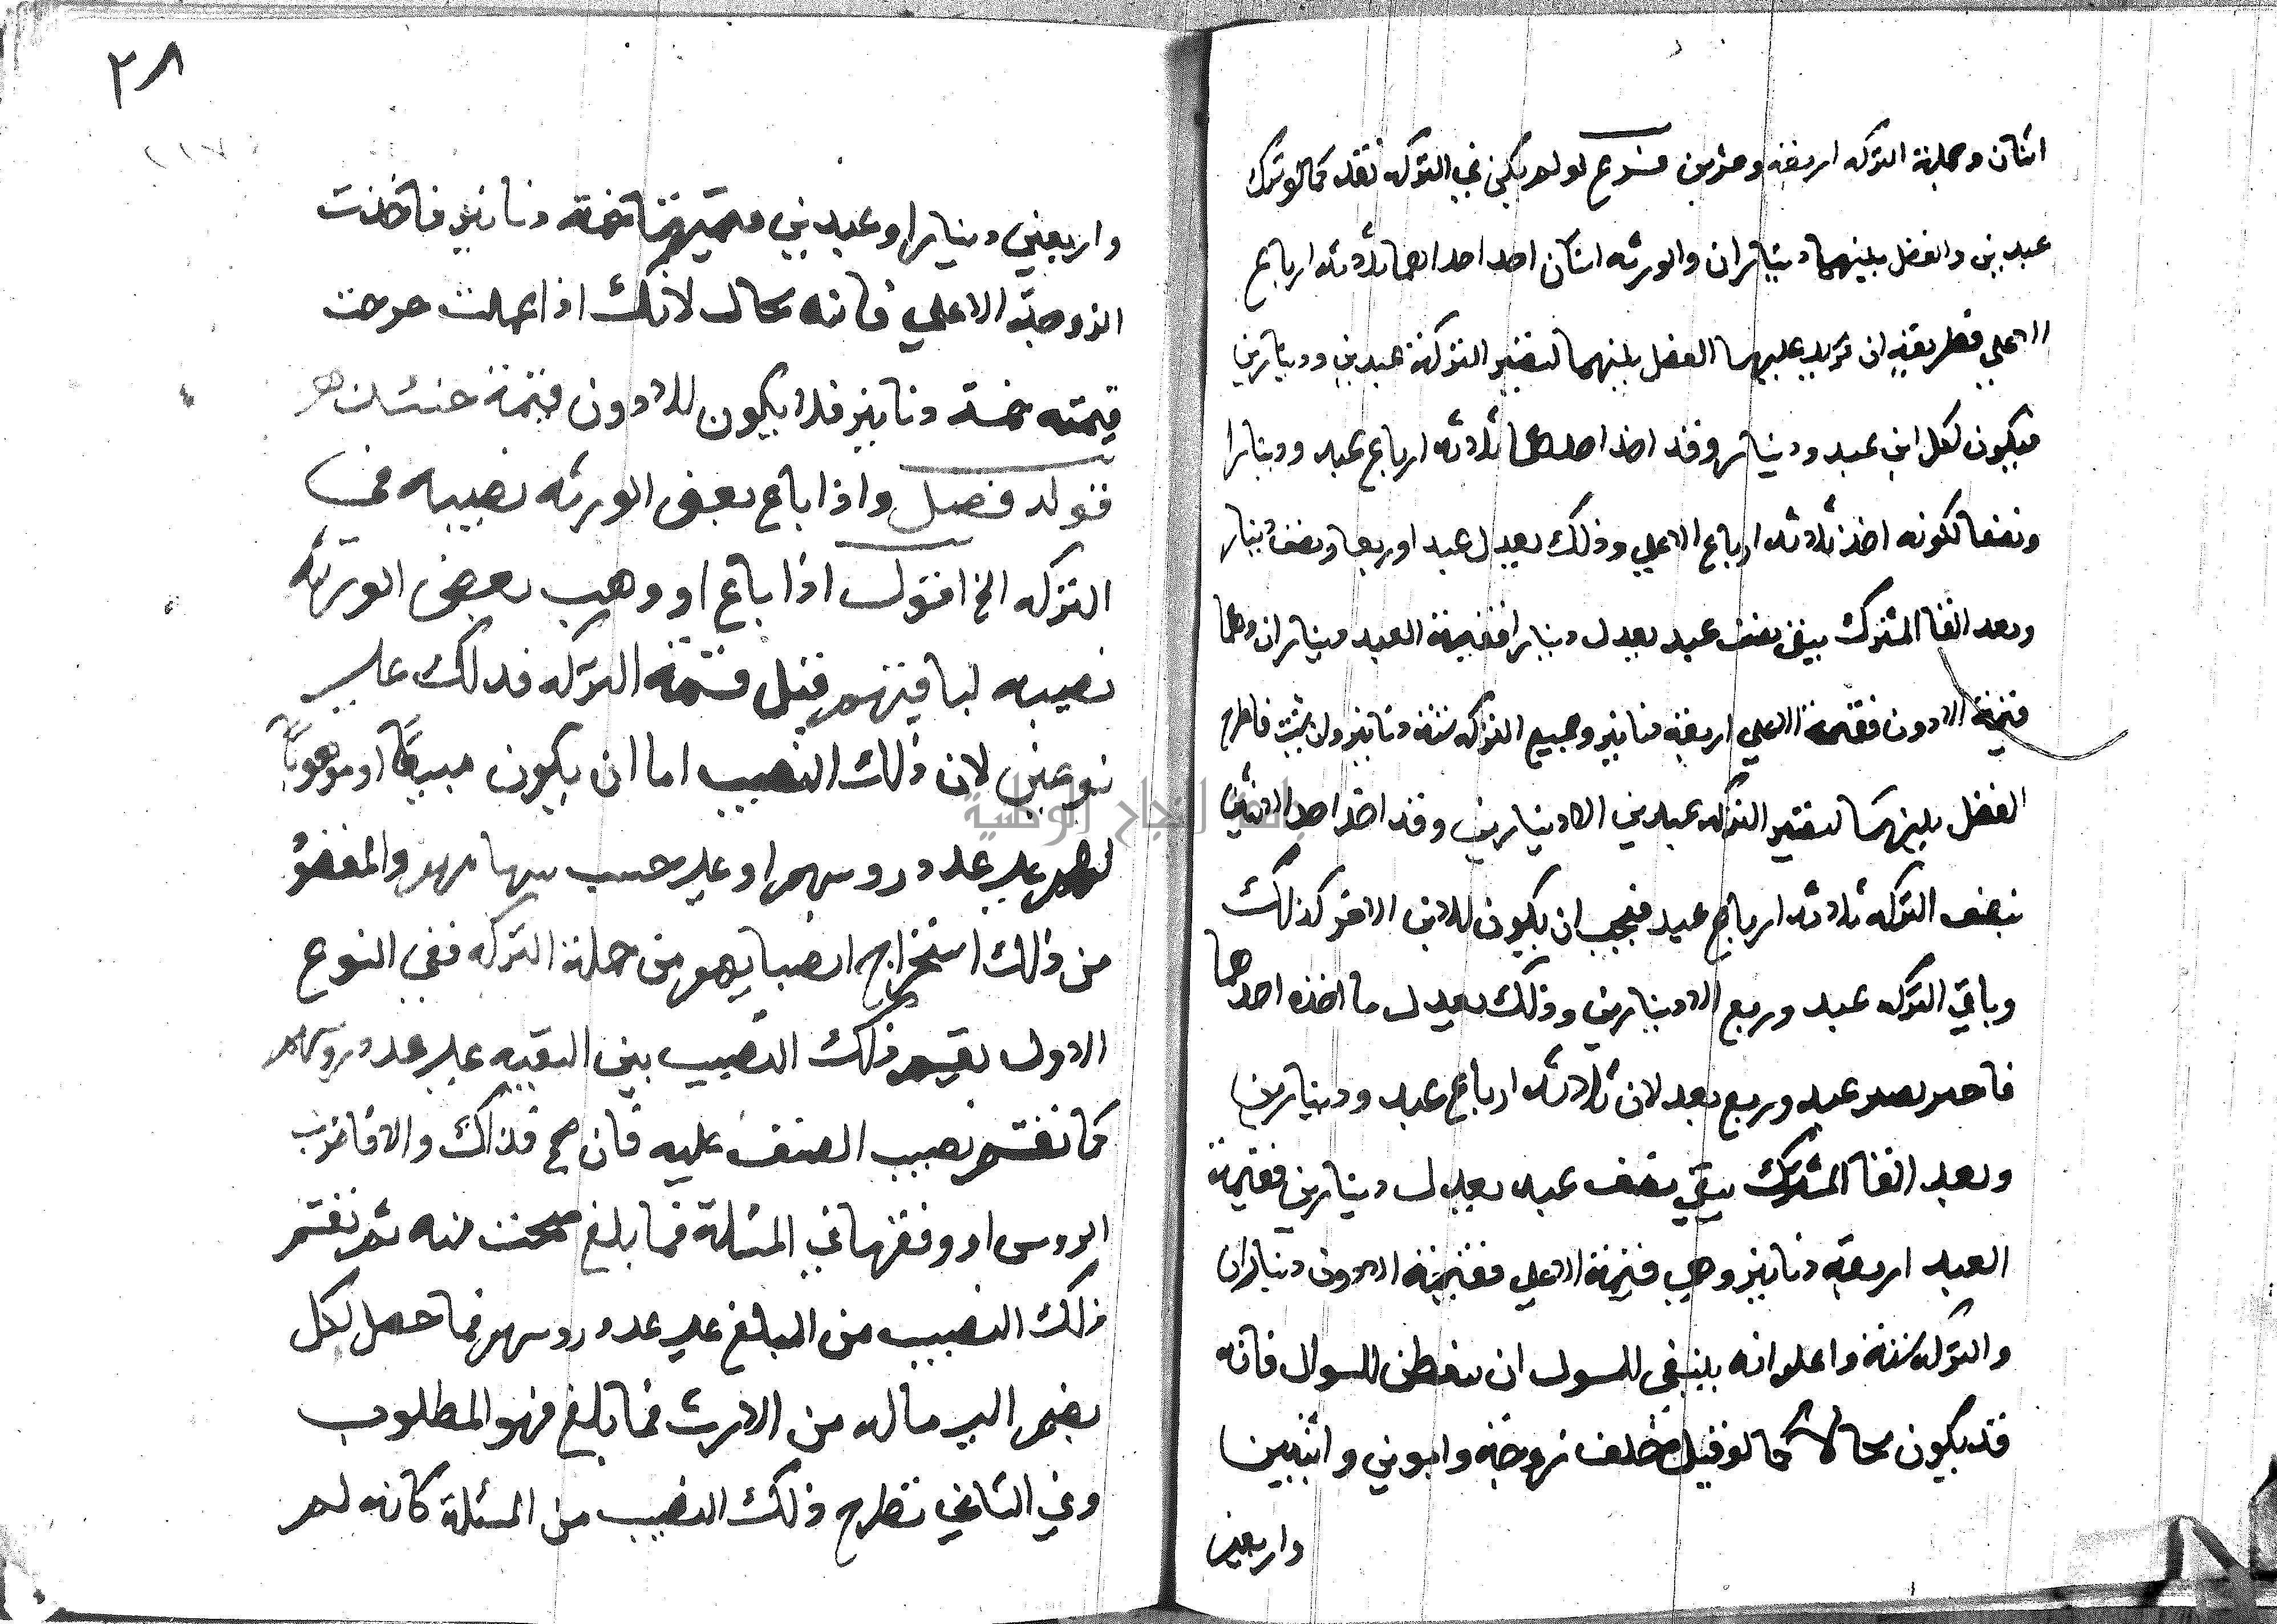 اثنان وجملة التركه اربعة وعشرين فرع لو لم يكن في التركه نقد كما لو ترك
عبدين والفضل بينهما ديناران والورثه اثنان اخذ احداهما ثلاثه ارباع
الاعلي فطريقه ان تزيد عليهما الفضل بينهما لتصير التركة عبدين ودينارين
فيكون لكل ابن عبد ودينار وقد اخذ احدهما ثلاثه ارباع عبد ودينارا
ونصفا لكونه اخذ ثلاثه ارباع الاعلي وذلك يعدل عبد اوربعا ونصف دينار
وبعد القا المشترك يبقى نصف عبد يعدل دينارا فقيمة العبد ديناران وهما
قيمة الادون فقيمة الاعلي اربعة دنانير وجميع التركه ستة دنانير وان شيت فاطرح
الفضل بينهما لتصير التركه عبدين الا دينارين وقد اخذ احد الاثنين
بنصف التركه ثلاثه ارباع عبد فيجب ان يكون للابن الاخر كذلك
وباقي التركه عبد وربع الا دينارين وذلك يعدل ما اخذه احدهما
فاجبر يصير عبد وربع يعدلان ثلاثه ارباع عبد ودينارين
وبعد القا المشترك يبقى نصف عبد يعدل دينارين فقيمة
العبد اربعه دنانير وهي قيمة الاعلي فقيمة الادون ديناران
والتركه ستة واعلم انه ينبغي للمسول ان يتفطن للسوال فانه
قد يكون محالا كما لو قيل خلف زوجة وابوين وابنين
واربعين
٣٨
واربعين دينارا وعبدين قيمتهما خمسة دنانير فاخذت
الزوجة الاعلي فانه محال لانك اذا عملت خرجت
قيمته خمسة دنانير فلا يكون للادون قيمة حينئذ
قوله فصل واذا باع بعض الورثه نصيبه من
التركه الخ اقول اذا باع او وهب بعض الورثه
نصيبه لباقيهم قبل قسمة التركه فذلك على
نوعين لان ذلك النصيب اما ان يكون مبيعا او موهوبا
لهم على عدد روسهم او على حسب سهامهم والمقصود
من ذلك استخراج انصبايهم من جملة التركه ففي النوع
الاول يقسم ذلك النصيب بين البقيه على عدد روسهم
كما تقسم نصيب الصنف عليه فان صح فذاك والا فاضرب
الروس او وفقها في المسئلة فما بلغ صحت منه ثم تقسم
ذلك النصيب من المبلغ على عدد روسهم فما حصل لكل
يضم الى ماله من الارث فما بلغ فهو المطلوب
وفي الثاني تطرح ذلك النصيب من المسئلة كانه لم
جامعة النجاح الوطنية